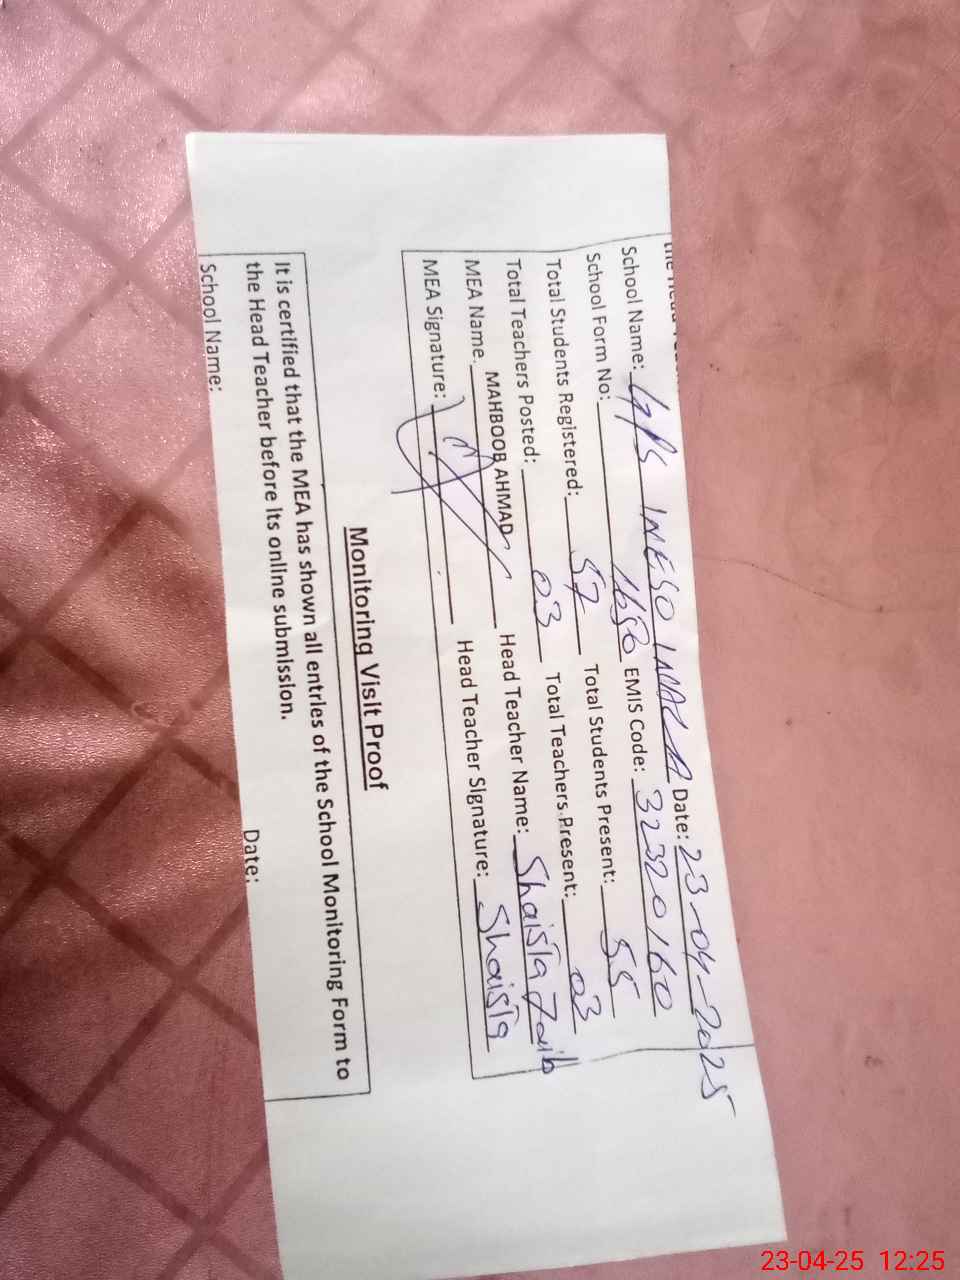 School Name: GPS INESO INAZLA Date: 23-04-2025
School Form No: 1650 EMIS Code: 32320160
Total Students Registered: 57 Total Students Present: 55
Total Teachers Posted: 03 Total Teachers Present: 03
MEA Name. MAHBOOB AHMAD Head Teacher Name: Shaista Zaib
MEA Signature: Head Teacher Signature: Shaista
Monitoring Visit Proof
It is certified that the MEA has shown all entries of the School Monitoring Form to
the Head Teacher before its online submission.
School Name: Date:
23-04-25 12:25